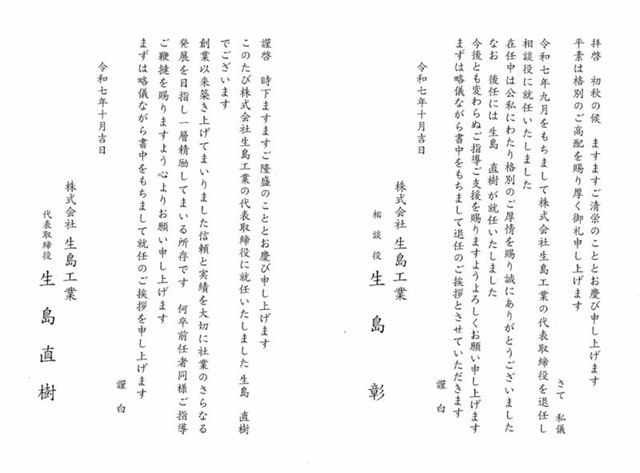 拝啓　初秋の候　ますますご清栄のこととお慶び申し上げます
平素は格別のご高配を賜り厚く御礼申し上げます
さて　私儀
令和七年九月をもちまして株式会社生島工業の代表取締役を退任し
相談役に就任いたしました
在任中は公私にわたり格別のご厚情を賜り誠にありがとうございました
なお　後任には　生島　直樹が就任いたしました
今後とも変わらぬご指導ご支援を賜りますようよろしくお願い申し上げます
まずは略儀ながら書中をもちまして退任のご挨拶とさせていただきます
謹　白
令和七年十月吉日
株式会社　生島工業
相談役　生島　彰
謹啓　時下ますますご隆盛のこととお慶び申し上げます
このたび株式会社生島工業の代表取締役に就任いたしました生島　直樹
でございます
創業以来築き上げてまいりました信頼と実績を大切に社業のさらなる
発展を目指し一層精励してまいる所存です　何卒前任者同様ご指導
ご鞭撻を賜りますよう心よりお願い申し上げます
まずは略儀ながら書中をもちまして就任のご挨拶を申し上げます
謹　白
令和七年十月吉日
株式会社　生島工業
代表取締役　生島直樹